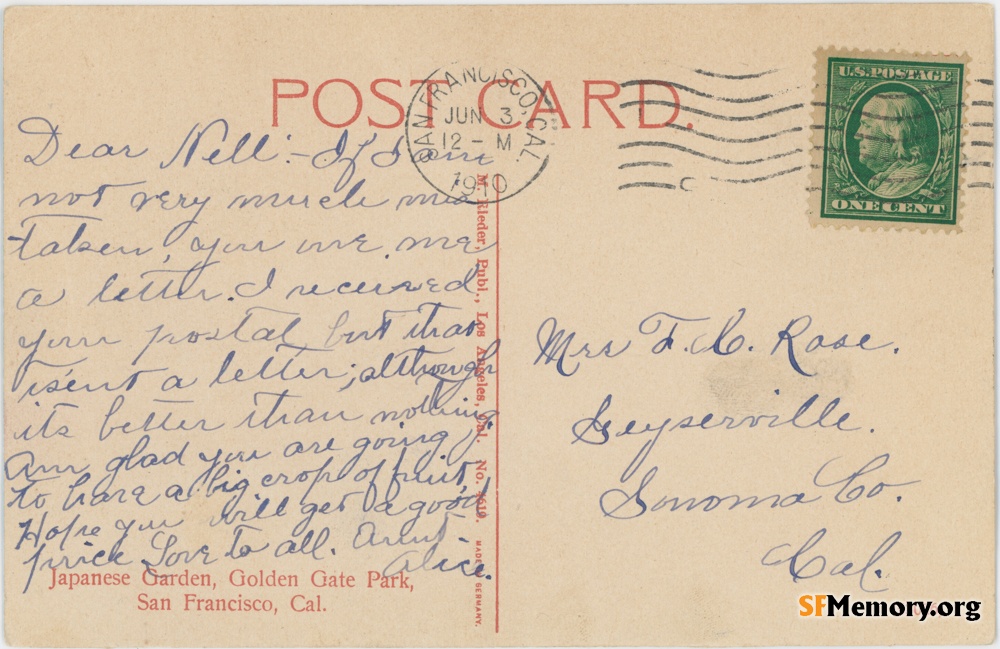 POST CARD.
SAN FRANCISCO, CAL.
JUN 3
12 - M
1910
U.S. POSTAGE
ONE CENT
Dear Nell:- If I am
not very much mis
taken, you owe me
a letter. I received
your postal but that
is'ent a letter; although
its better than nothing
Am glad you are going
to have a big crop of fruit,
Hope you will get a good
price Love to all. Aunt
Alice.
Mrs F. C. Rose.
Geyserville.
Sonoma Co.
Cal.
M. Rieder, Publ., Los Angeles, Cal. No.
MADE IN GERMANY.
Japanese Garden, Golden Gate Park,
San Francisco, Cal.
SFMemory.org